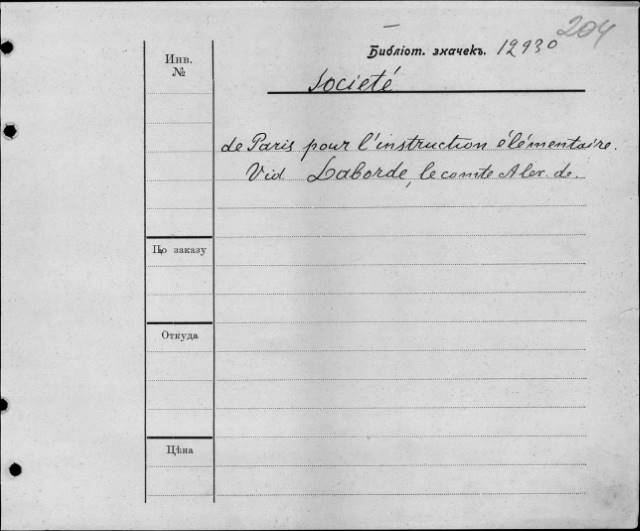 204
Библіот. значекъ. 12930
Инв.
№
Societé
de Paris pour l'instruction élémentaire.
Vid. Laborde, le comte Alex. de.
По заказу
Откуда
Цѣна